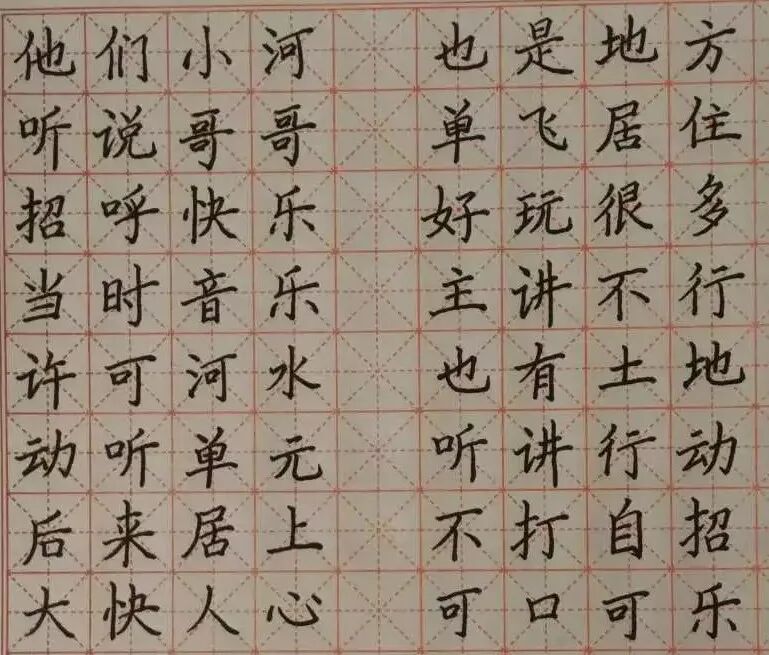 他们小河 也是地方
听说哥哥 单飞居住
招呼快乐 好玩很多
当时音乐 主讲不行
许可河水 也有土地
动听单元 听讲行动
后来居上 不打自招
大快人心 可口可乐